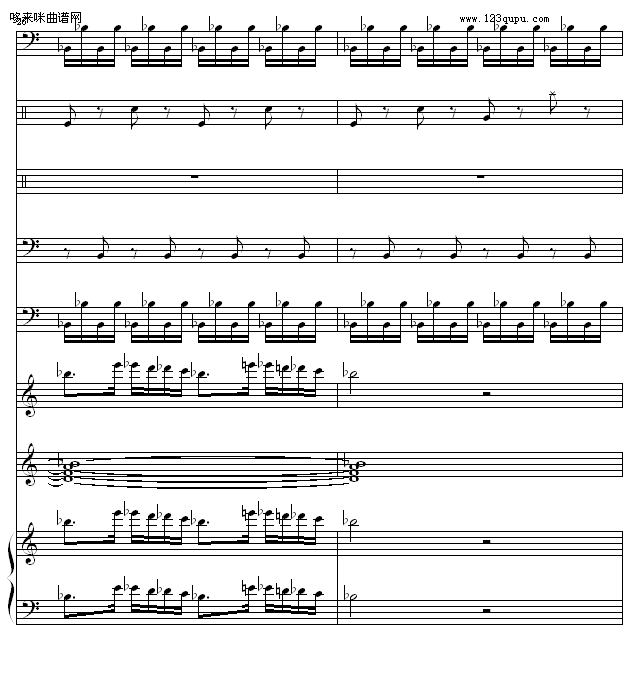 哆来咪曲谱网
www.123qupu.com